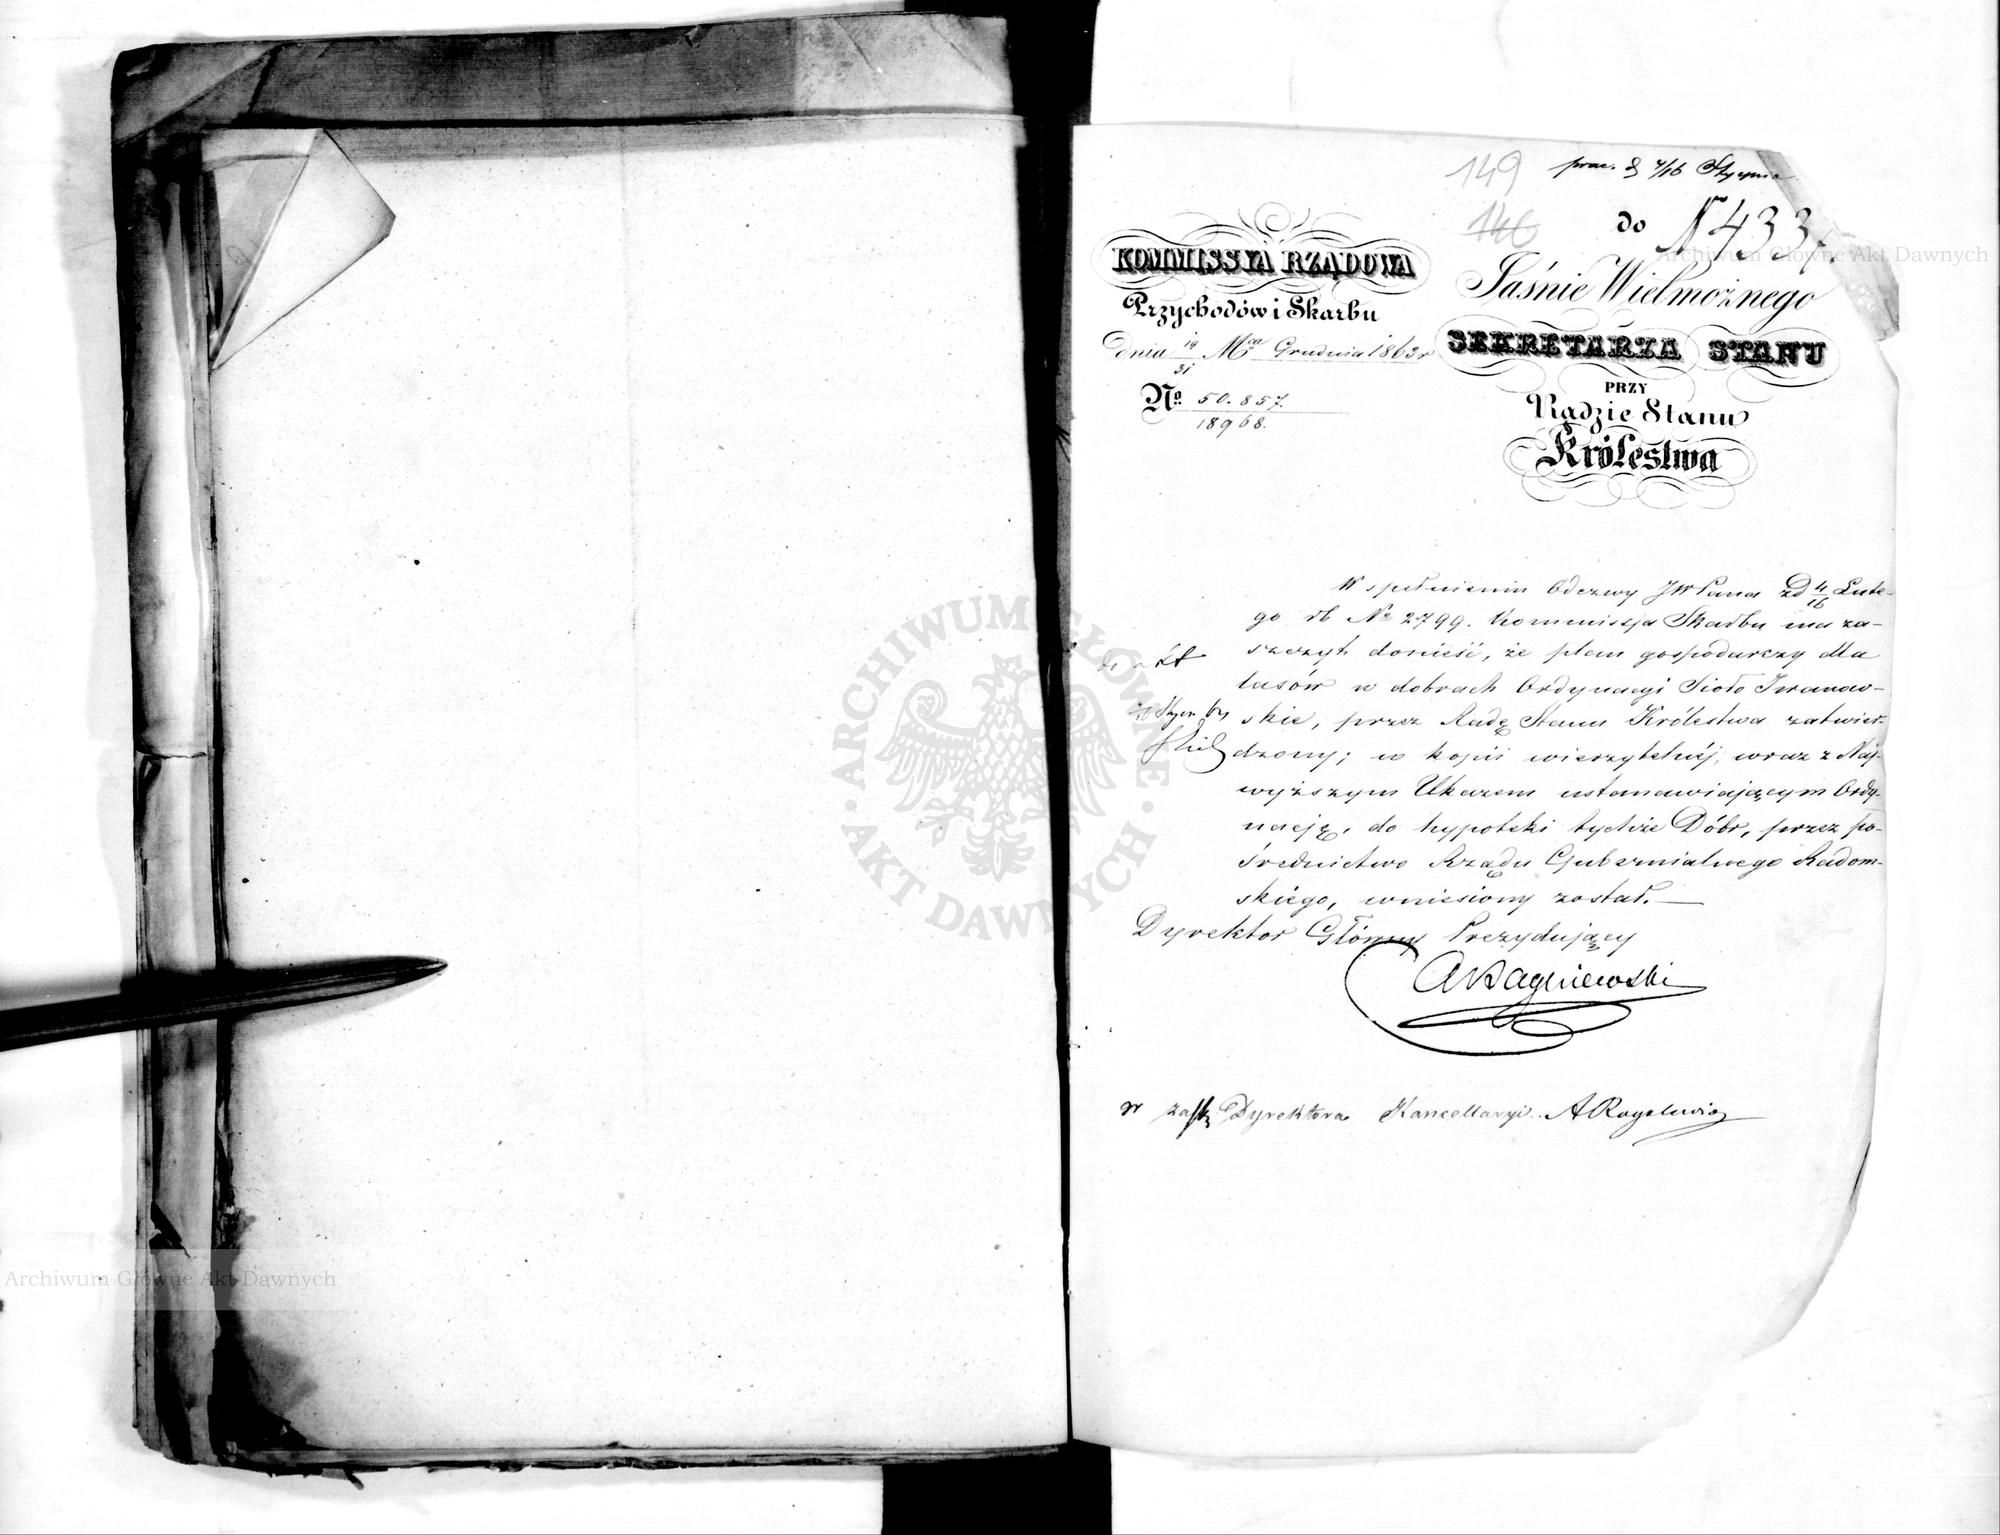 149
prac. d 4/16 Stycznia
146
do
N 433/.
KOMMISSYA RZĄDOWA
Przychodów i Skarbu
dnia 19/31 Mca Grudnia 1863 r
No. 50.857.
18968.
Jaśnie Wielmożnego
SEKRETARZA STANU
PRZY
Radzie Stanu
Królestwa
W spełnieniu Odezwy JW Pana z d 4/16 Lute-
go rb No 2799. Kommissja Skarbu ma za-
szczyt donieść, że plan gospodarczy dla
lasów w dobrach Ordynacyi Sioło Iwanow-
skie, przez Radę Stanu Królestwa zatwier-
dzony; w kopii wierzytelnéj, wraz z Naj-
wyższym Ukazem ustanawiającym Ordy-
nację, do hypoteki tychże Dóbr, przez po-
średnictwo Rządu Gubernialnego Radom-
skiego, wniesiony został.—
do akt
Stycz. 64
Dyrektor Główny Prezydujący
Bagniewski
w zast Dyrektora Kancellaryi. A Rogalewicz
ARCHIWUM GŁÓWNE AKT DAWNYCH
Archiwum Główne Akt Dawnych
Archiwum Główne Akt Dawnych